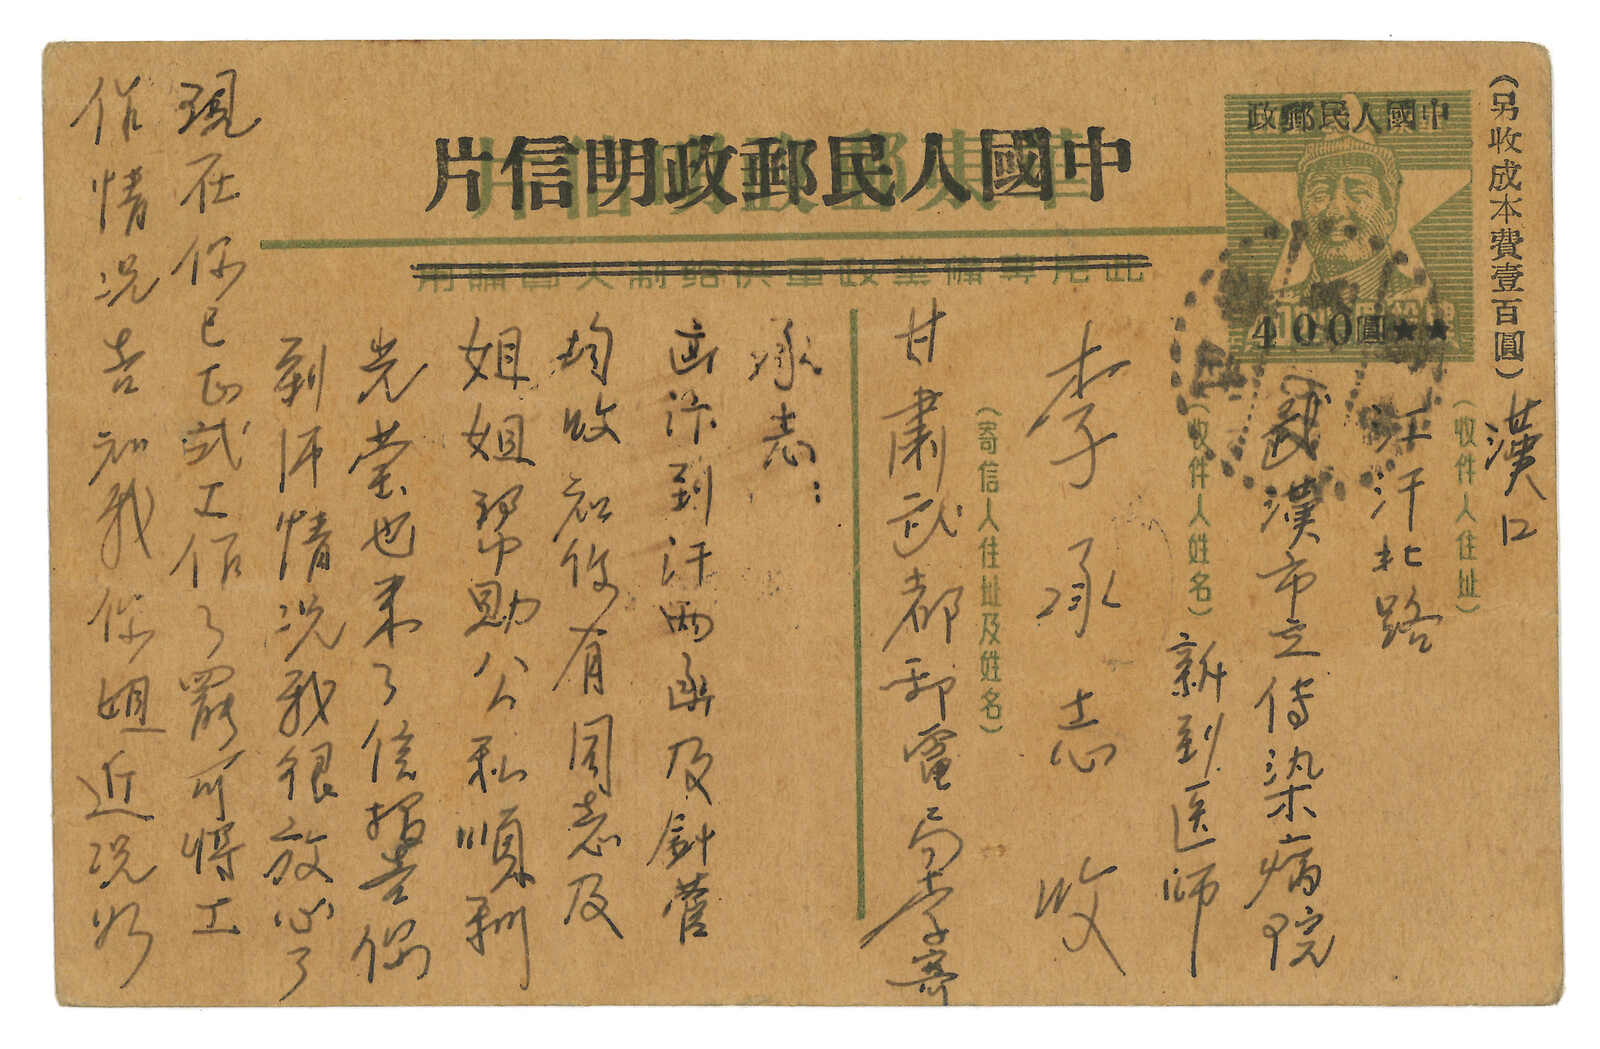 (另收成本費壹百圓)
中國人民郵政
400圓
中國人民郵政明信片
(收件人住址)
漢口
江汗北路
武漢市立传染病院
(收件人姓名)
新到医师
李承志 收
(寄信人住址及姓名)
甘肅武都邮電局李寄
承志:
到汗两函及針管
均收知你有同志及
姐姐帮助公私順利
光荣也来了信
到情况我很放心了
现在你已正式工作了 可将工
作情况告知我你姐近况好